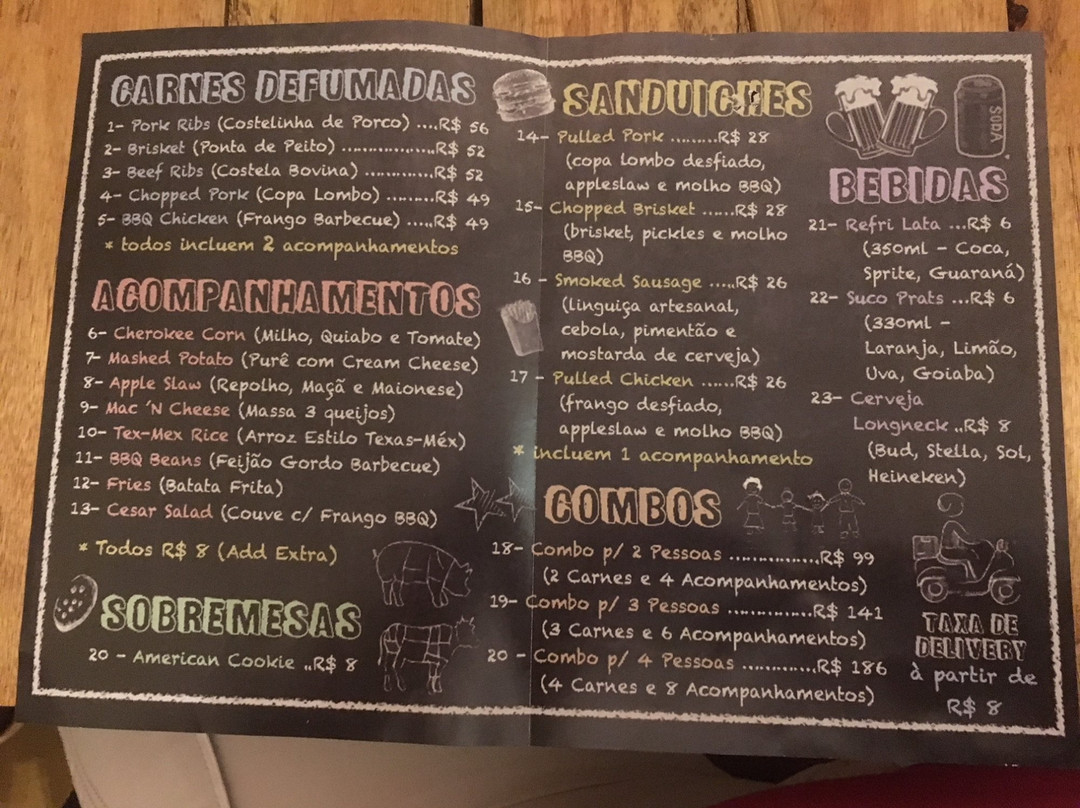 CARNES DEFUMADAS
1- Pork Ribs (Costelinha de Porco) ....R$ 56
2- Brisket (Ponta de Peito) ................R$ 52
3- Beef Ribs (Costela Bovina) ............R$ 52
4- Chopped Pork (Copa Lombo) ........R$ 49
5- BBQ Chicken (Frango Barbecue) .....R$ 49
* todos incluem 2 acompanhamentos
ACOMPANHAMENTOS
6- Cherokee Corn (Milho, Quiabo e Tomate)
7- Mashed Potato (Purê com Cream Cheese)
8- Apple Slaw (Repolho, Maçã e Maionese)
9- Mac 'N Cheese (Massa 3 queijos)
10- Tex-Mex Rice (Arroz Estilo Texas-Méx)
11- BBQ Beans (Feijão Gordo Barbecue)
12- Fries (Batata Frita)
13- Cesar Salad (Couve c/ Frango BBQ)
* Todos R$ 8 (Add Extra)
SOBREMESAS
20 - American Cookie ..R$ 8
SANDUICHES
14- Pulled Pork .........R$ 28
(copa lombo desfiado,
appleslaw e molho BBQ)
15- Chopped Brisket ......R$ 28
(brisket, pickles e molho
BBQ)
16 - Smoked Sausage .....R$ 26
(linguiça artesanal,
cebola, pimentão e
mostarda de cerveja)
17 - Pulled Chicken ......R$ 26
(frango desfiado,
appleslaw e molho BBQ)
* incluem 1 acompanhamento
COMBOS
18- Combo p/ 2 Pessoas ...............R$ 99
(2 Carnes e 4 Acompanhamentos)
19- Combo p/ 3 Pessoas ..............R$ 141
(3 Carnes e 6 Acompanhamentos)
20 - Combo p/ 4 Pessoas ..............R$ 186
(4 Carnes e 8 Acompanhamentos)
SODA
BEBIDAS
21- Refri Lata ...R$ 6
(350ml - Coca,
Sprite, Guaraná)
22- Suco Prats ...R$ 6
(330ml -
Laranja, Limão,
Uva, Goiaba)
23- Cerveja
Longneck ..R$ 8
(Bud, Stella, Sol,
Heineken)
TAXA DE
DELIVERY
à partir de
R$ 8